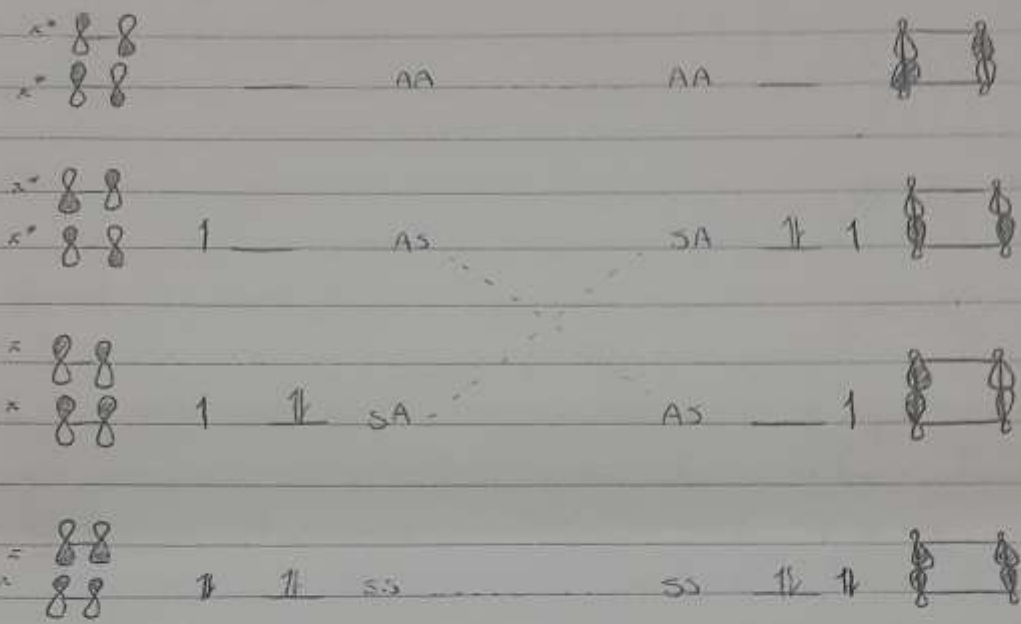 π*
π* AA AA
π*
π* 1 AS SA 1↿⇂ 1
π
π 1 1↿⇂ SA AS 1
π
π 1↿⇂ 1↿⇂ SS SS 1↿⇂ 1↿⇂